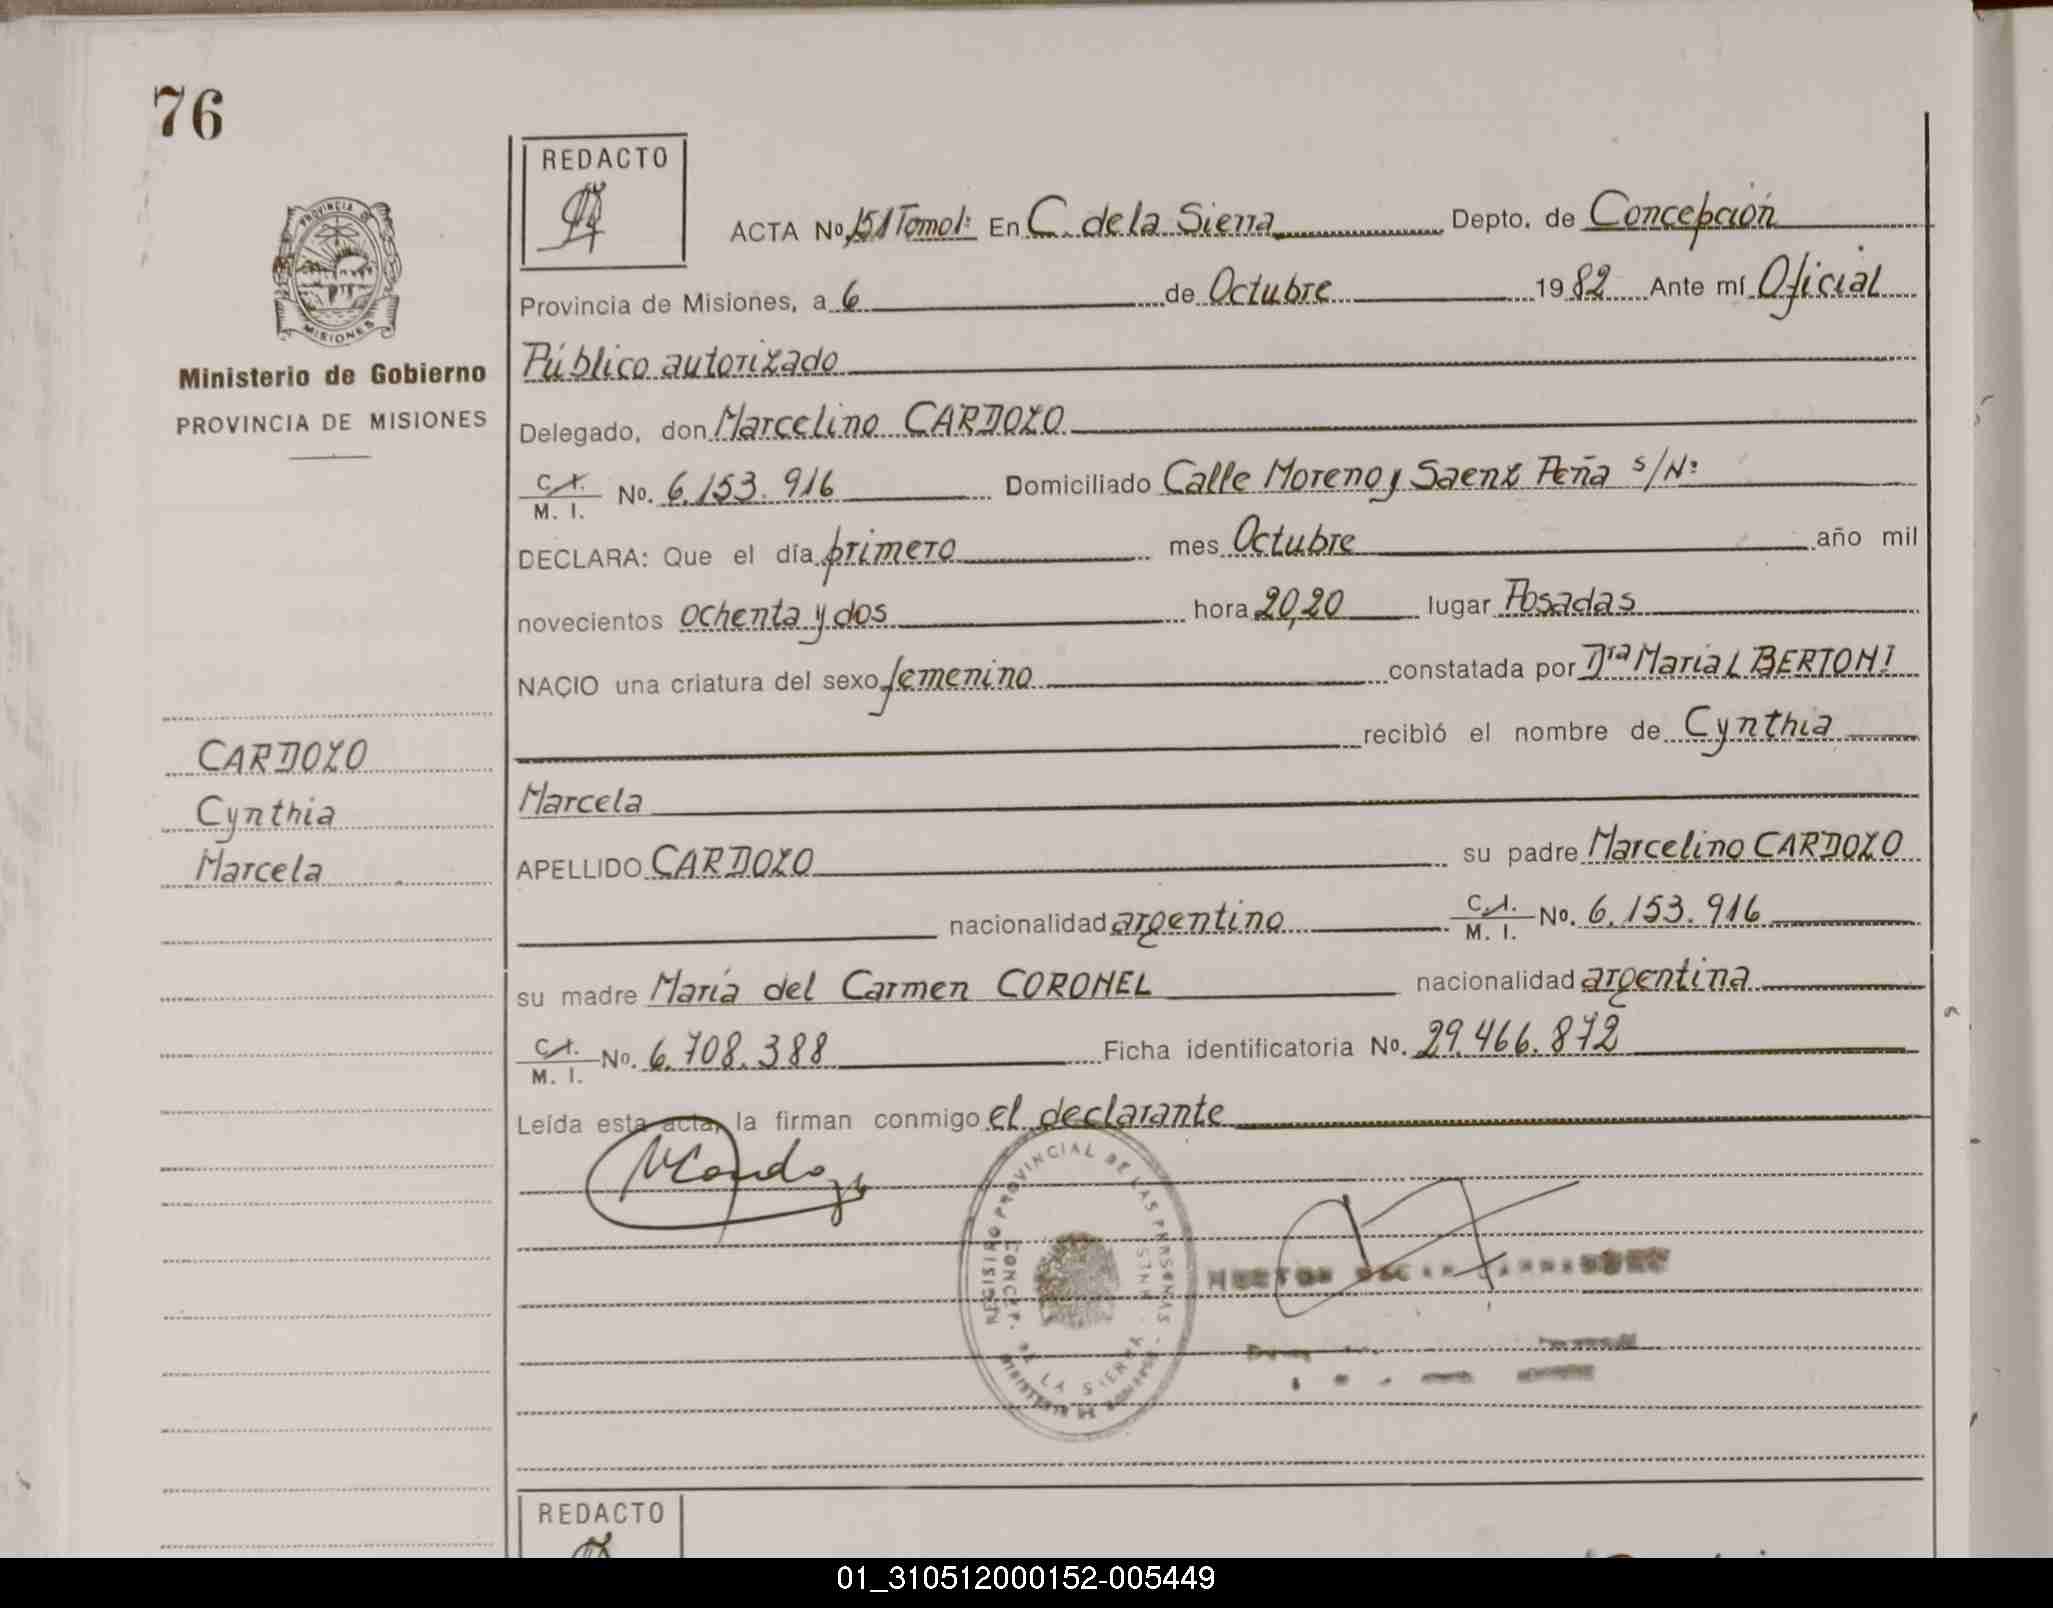 76
REDACTO
ACTA No 151 Tomo I: En C. de la Sierra Depto. de Concepción
PROVINCIA DE
MISIONES
Provincia de Misiones, a 6 de Octubre 19 82 Ante mí Oficial
Ministerio de Gobierno
PROVINCIA DE MISIONES
Público autorizado
Delegado, don Marcelino CARDOZO
C. I.
M. I. No. 6.153.916 Domiciliado Calle Moreno y Saenz Peña s/Nº
DECLARA: Que el día primero mes Octubre año mil
novecientos ochenta y dos hora 20,20 lugar Posadas
NACIO una criatura del sexo femenino constatada por Dra Maria L BERTONI
recibió el nombre de Cynthia
Marcela
CARDOZO
Cynthia
Marcela
APELLIDO CARDOZO su padre Marcelino CARDOZO
nacionalidad argentino C. I.
M. I. No. 6.153.916
su madre María del Carmen CORONEL nacionalidad argentina
C. I.
M. I. No. 6.708.388 Ficha identificatoria No. 29.466.872
Leída esta acta, la firman conmigo el declarante
REGISTRO PROVINCIAL DE LAS PERSONAS
CONCEP. DE LA SIERRA
REDACTO
01_310512000152-005449